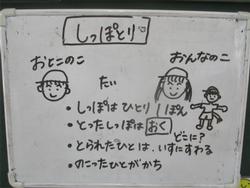 しっぽとり
おとこのこ
おんなのこ
たい
・しっぽは ひとり 1ぽん
・とったしっぽは おく
どこに?
・とられたひとは、いすにすわる
・のこったひとがかち